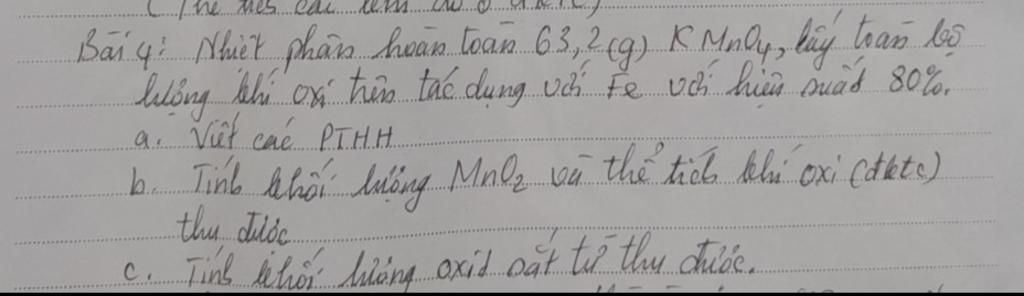 (Thể tích các
Bài 4: Nhiệt phân hoàn toàn 63,2 (g) KMnO4, lấy toàn bộ
lượng khí oxi trên tác dụng với Fe với hiệu suất 80%.
a. Viết các PTHH
b. Tính khối lượng MnO2 và thể tích khí oxi (đktc)
thu được
c. Tính khối lượng oxid sắt từ thu được.